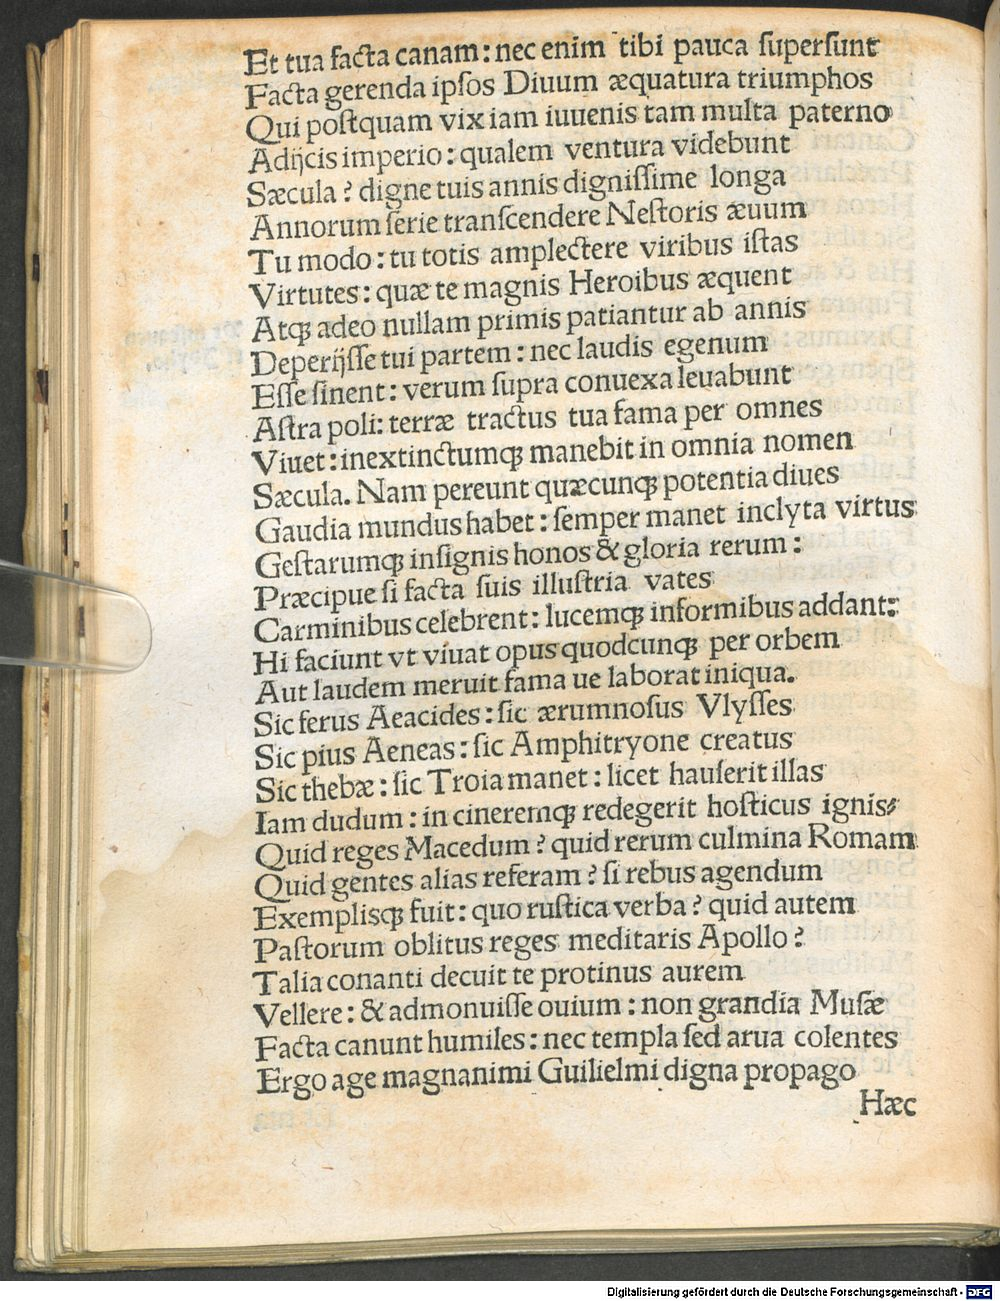 Et tua facta canam: nec enim tibi pauca ſuperſunt
Facta gerenda ipſos Diuum æquatura triumphos
Qui poſtquam vix iam iuuenis tam multa paterno
Adijcis imperio: qualem ventura videbunt
Sæcula? digne tuis annis digniſſime longa
Annorum ſerie tranſcendere Neſtoris æuum
Tu modo: tu totis amplectere viribus iſtas
Virtutes: quæ te magnis Heroibus æquent
Atqꝫ adeo nullam primis patiantur ab annis
Deperijſſe tui partem: nec laudis egenum
Eſſe ſinent: verum ſupra conuexa leuabunt
Aſtra poli: terræ tractus tua fama per omnes
Viuet: inextinctumqꝫ manebit in omnia nomen
Sæcula. Nam pereunt quæcunqꝫ potentia diues
Gaudia mundus habet: ſemper manet inclyta virtus
Geſtarumqꝫ inſignis honos & gloria rerum:
Præcipue ſi facta ſuis illuſtria vates
Carminibus celebrent: lucemqꝫ informibus addant:
Hi faciunt vt viuat opus quodcunqꝫ per orbem
Aut laudem meruit fama ue laborat iniqua.
Sic ferus Aeacides: ſic ærumnoſus Vlyſſes
Sic pius Aeneas: ſic Amphitryone creatus
Sic thebæ: ſic Troia manet: licet hauſerit illas
Iam dudum: in cineremqꝫ redegerit hoſticus ignis⸗
Quid reges Macedum? quid rerum culmina Romam
Quid gentes alias referam? ſi rebus agendum
Exemplisqꝫ fuit: quo ruſtica verba? quid autem
Paſtorum oblitus reges meditaris Apollo?
Talia conanti decuit te protinus aurem
Vellere: & admonuiſſe ouium: non grandia Muſæ
Facta canunt humiles: nec templa ſed arua colentes
Ergo age magnanimi Guilielmi digna propago
Hæc
Digitalisierung gefördert durch die Deutsche Forschungsgemeinschaft - DFG